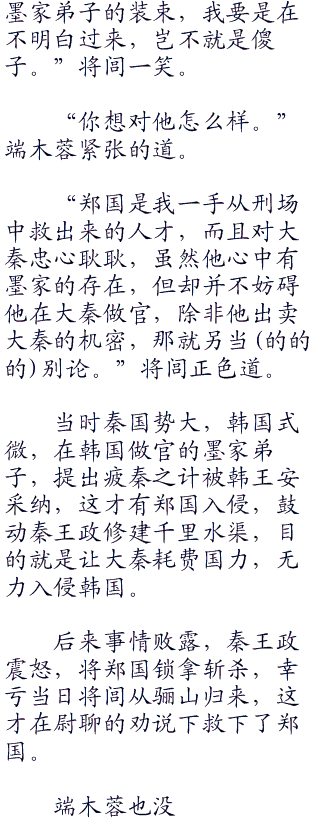 墨家弟子的装束，我要是在
不明白过来，岂不就是傻
子。”将闾一笑。
“你想对他怎么样。”
端木蓉紧张的道。
“郑国是我一手从刑场
中救出来的人才，而且对大
秦忠心耿耿，虽然他心中有
墨家的存在，但却并不妨碍
他在大秦做官，除非他出卖
大秦的机密，那就另当(的的
的)别论。”将闾正色道。
当时秦国势大，韩国式
微，在韩国做官的墨家弟
子，提出疲秦之计被韩王安
采纳，这才有郑国入侵，鼓
动秦王政修建千里水渠，目
的就是让大秦耗费国力，无
力入侵韩国。
后来事情败露，秦王政
震怒，将郑国锁拿斩杀，幸
亏当日将闾从骊山归来，这
才在尉聊的劝说下救下了郑
国。
端木蓉也没